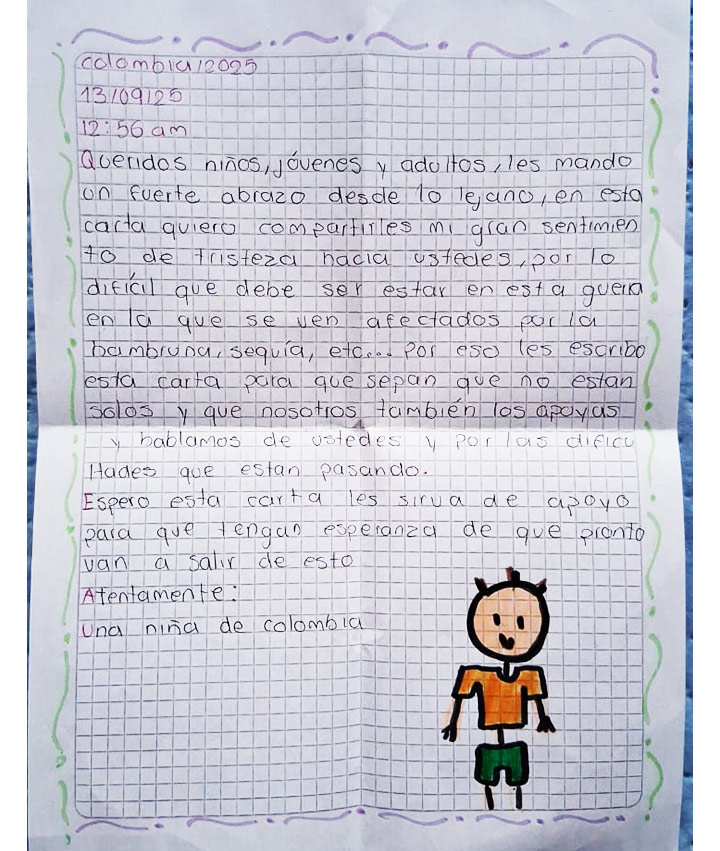 colombia/2025
13/09/25
12:56 am
Queridos niños, jóvenes y adultos, les mando
un fuerte abrazo desde lo lejano, en esta
carta quiero compartirles mi gran sentimien
to de tristeza hacia ustedes, por lo
dificil que debe ser estar en esta guerra
en la que se ven afectados por la
hambruna, sequía, etc... Por eso les escribo
esta carta para que sepan que no estan
solos y que nosotros también los apoyas
y hablamos de ustedes y por las dificu
ltades que estan pasando.
Espero esta carta les sirva de apoyo
para que tengan esperanza de que pronto
van a salir de esto
Atentamente:
Una niña de colombia